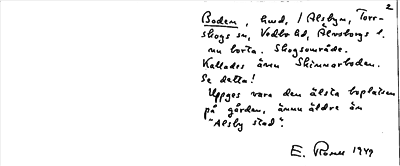 2
Boden, hmd. / Alsbyn, Torr-
skogs sn, Vedbo hd, Älvsborgs l.
nu borta. Skogsområde.
Kallades även Skinnarboden.
Se detta!
Uppges vara den älsta boplatsen
på gården, ännu äldre än
"Alsby stad".
E. 1949